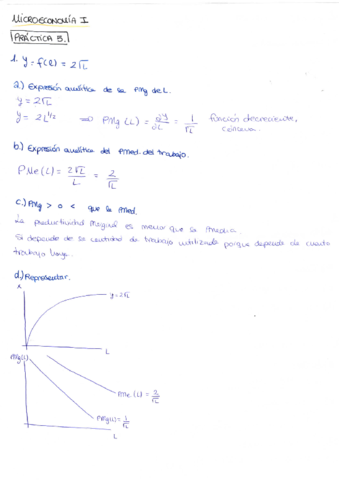 MICROECONOMÍA I
PRÁCTICA 5.
1. y = f(L) = 2√L
a) Expresión analítica de la PMg de L.
y = 2√L
y = 2L^1/2 ⇒ PMg (L) = ∂y/∂L = 1/√L función decreciente, convexa.
b) Expresión analítica del PMed. del trabajo.
PMe (L) = 2√L/L = 2/√L
c) PMg > o < que la PMed.
La productividad Marginal es menor que la Media.
Si depende de la cantidad de trabajo utilizada porque depende de cuanto
trabajo haya.
d) Representar.
y = 2√L
L
PMg(L)
PMe (L) = 2/√L
PMg(L) = 1/√L
L